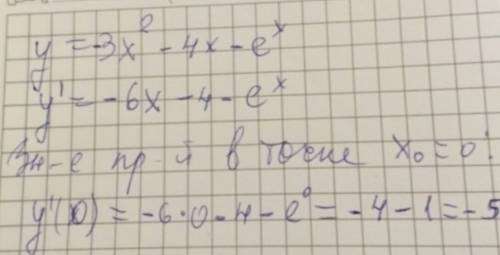 y = -3x² - 4x - eˣ
y' = -6x - 4 - eˣ
Зн-е пр-й в точке x₀ = 0:
y'(0) = -6·0 - 4 - e⁰ = -4 - 1 = -5